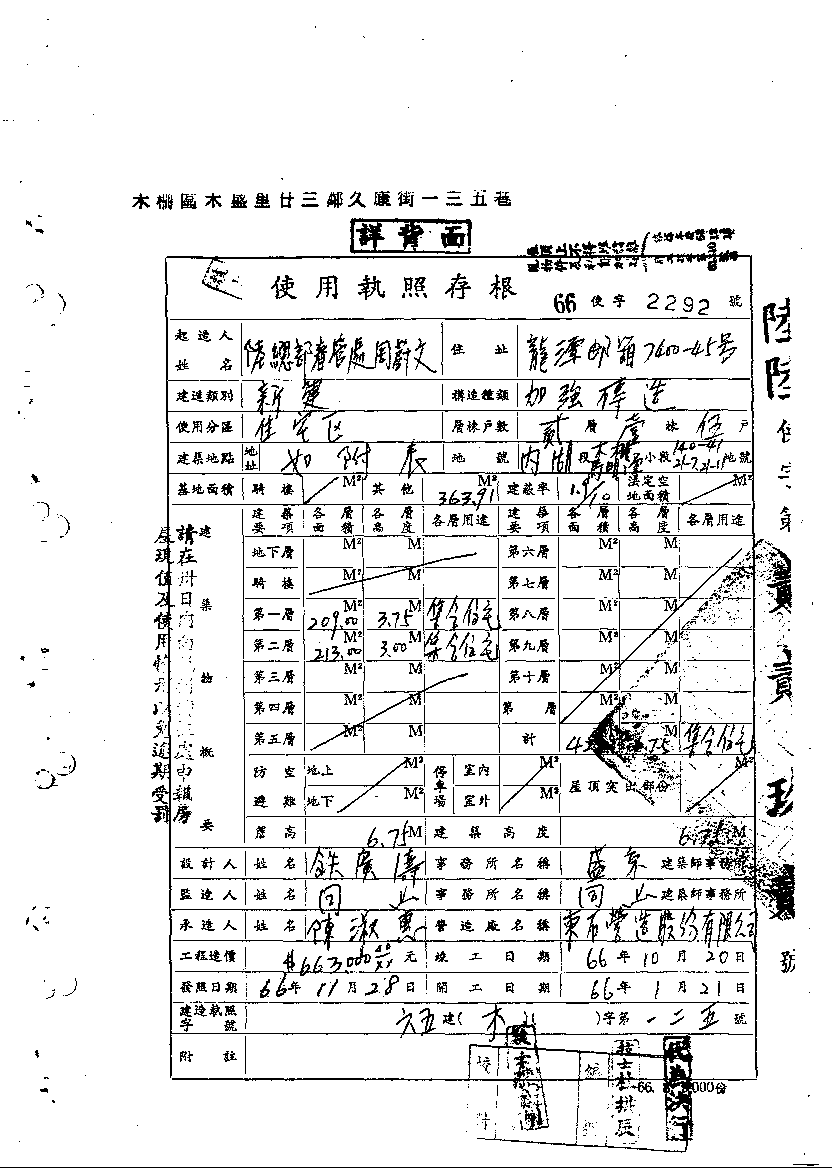 木柵區木盛里廿三鄰久康街一三五巷
詳背面
使用執照存根
66 使字 2292 號
起造人姓名 陸總部眷管處周蔚文 住址 龍潭郵箱7400-45号
建造類別 新建 構造種類 加強磚造
使用分區 住宅区 層棟戶數 貳層壹棟伍戶
建築地點 地址 如附表 地號 內湖段 小段 地號
基地面積 騎樓 M² 其他 363.91 M² 建蔽率 法定空地面積 M²
建築要項 各層面積 各層高度 各層用途 建築要項 各層面積 各層高度 各層用途
地下層 M² M 第六層 M² M
騎樓 M² M 第七層 M² M
第一層 209.00 M² 3.75 M 集合住宅 第八層 M² M
第二層 213.00 M² 3.00 M 集合住宅 第九層 M² M
第三層 M² M 第十層 M² M
第四層 M² M 第 層 M² M
第五層 M² M 計 集合住宅
建築物概要
防空避難 地上 M² 停車場 室內 M² 屋頂突出部份 M²
地下 M² 室外 M²
簷高 6.75 M 建築高度 6.75 M
設計人 姓名 事務所名稱 建築師事務所
監造人 姓名 同上 事務所名稱 同上 建築師事務所
承造人 姓名 陳淑惠 營造廠名稱 東石營造股份有限公司
工程造價 $663,000 元 竣工日期 66年10月20日
發照日期 66年11月28日 開工日期 66年1月21日
建造執照字號 六五建(木)字第一二五號
附註
代為決行
陸陸使字第貳貳玖貳號